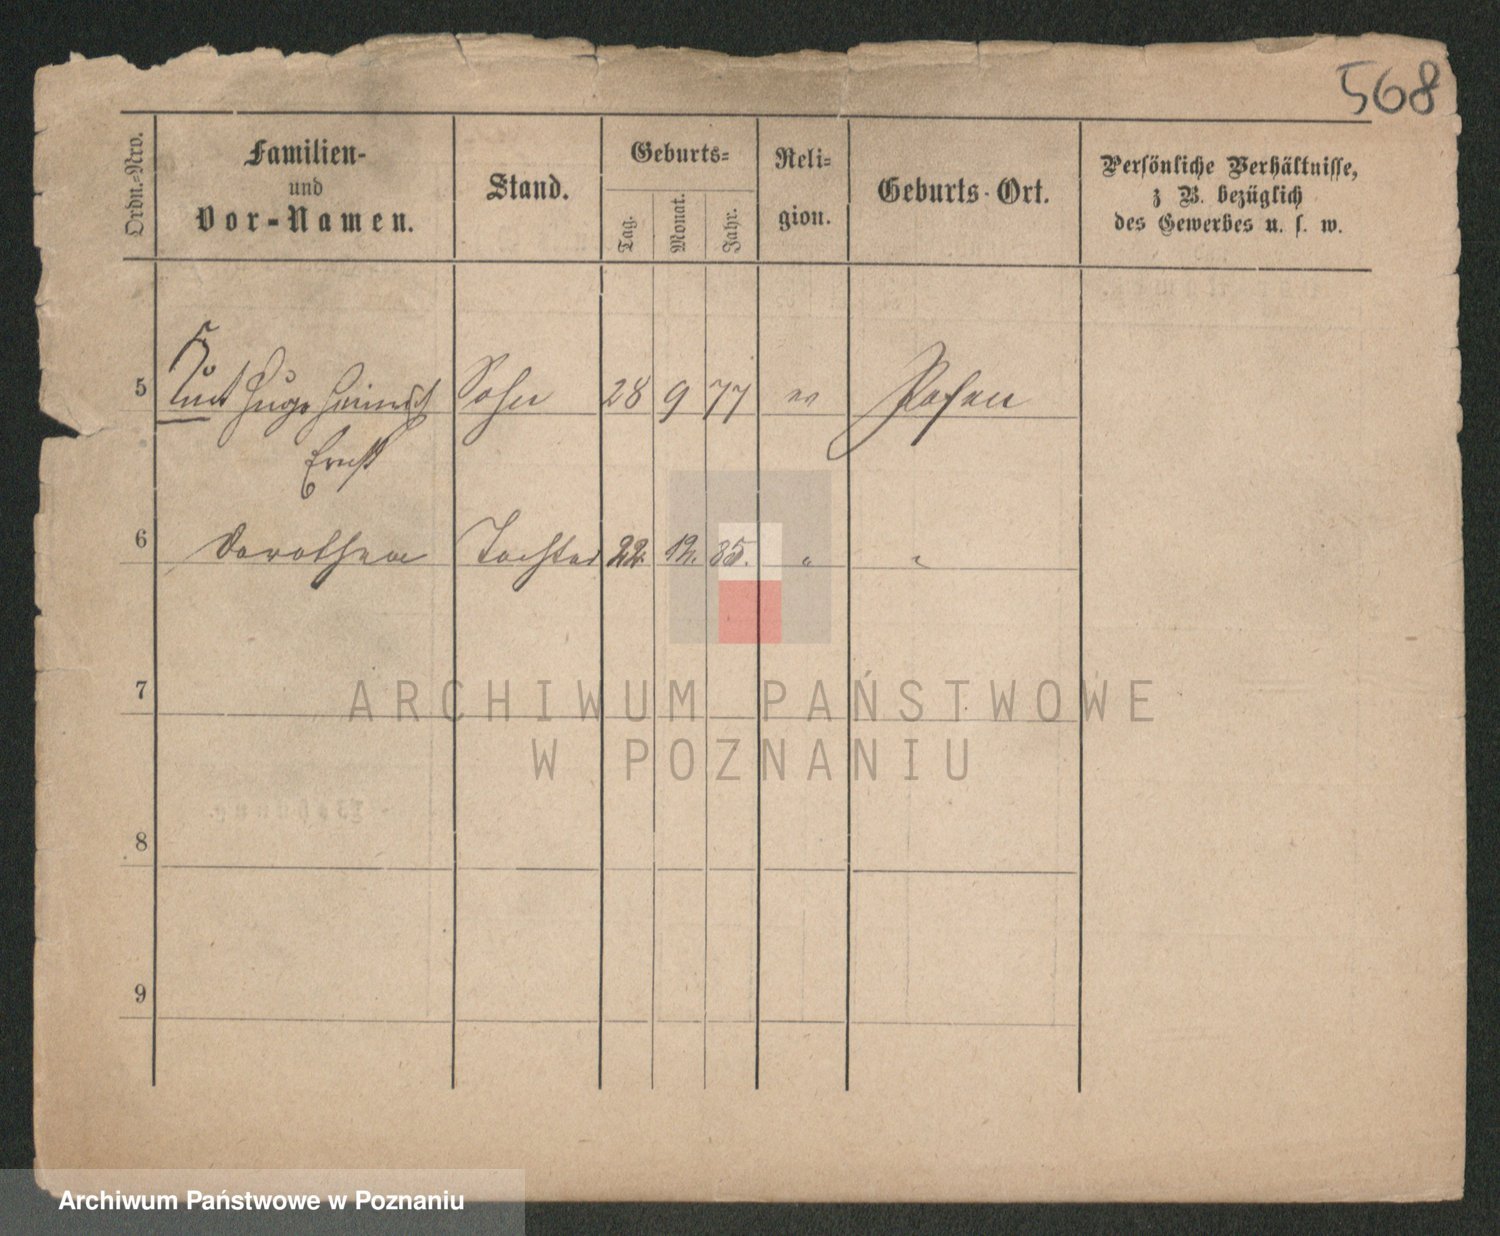 568
Ordn.-Nro.
Familien-
und
Vor-Namen.
Stand.
Geburts-
Tag.
Monat.
Jahr.
Reli-
gion.
Geburts-Ort.
Persönliche Verhältnisse,
z B. bezüglich
des Gewerbes u. s. w.
5 Kurt Hugo Heinrich Sohn 28 9 77 ev Posen
Ernst
6 Dorothea Tochter 22. 12. 85. " "
7
8
9
ARCHIWUM PAŃSTWOWE
W POZNANIU
Archiwum Państwowe w Poznaniu